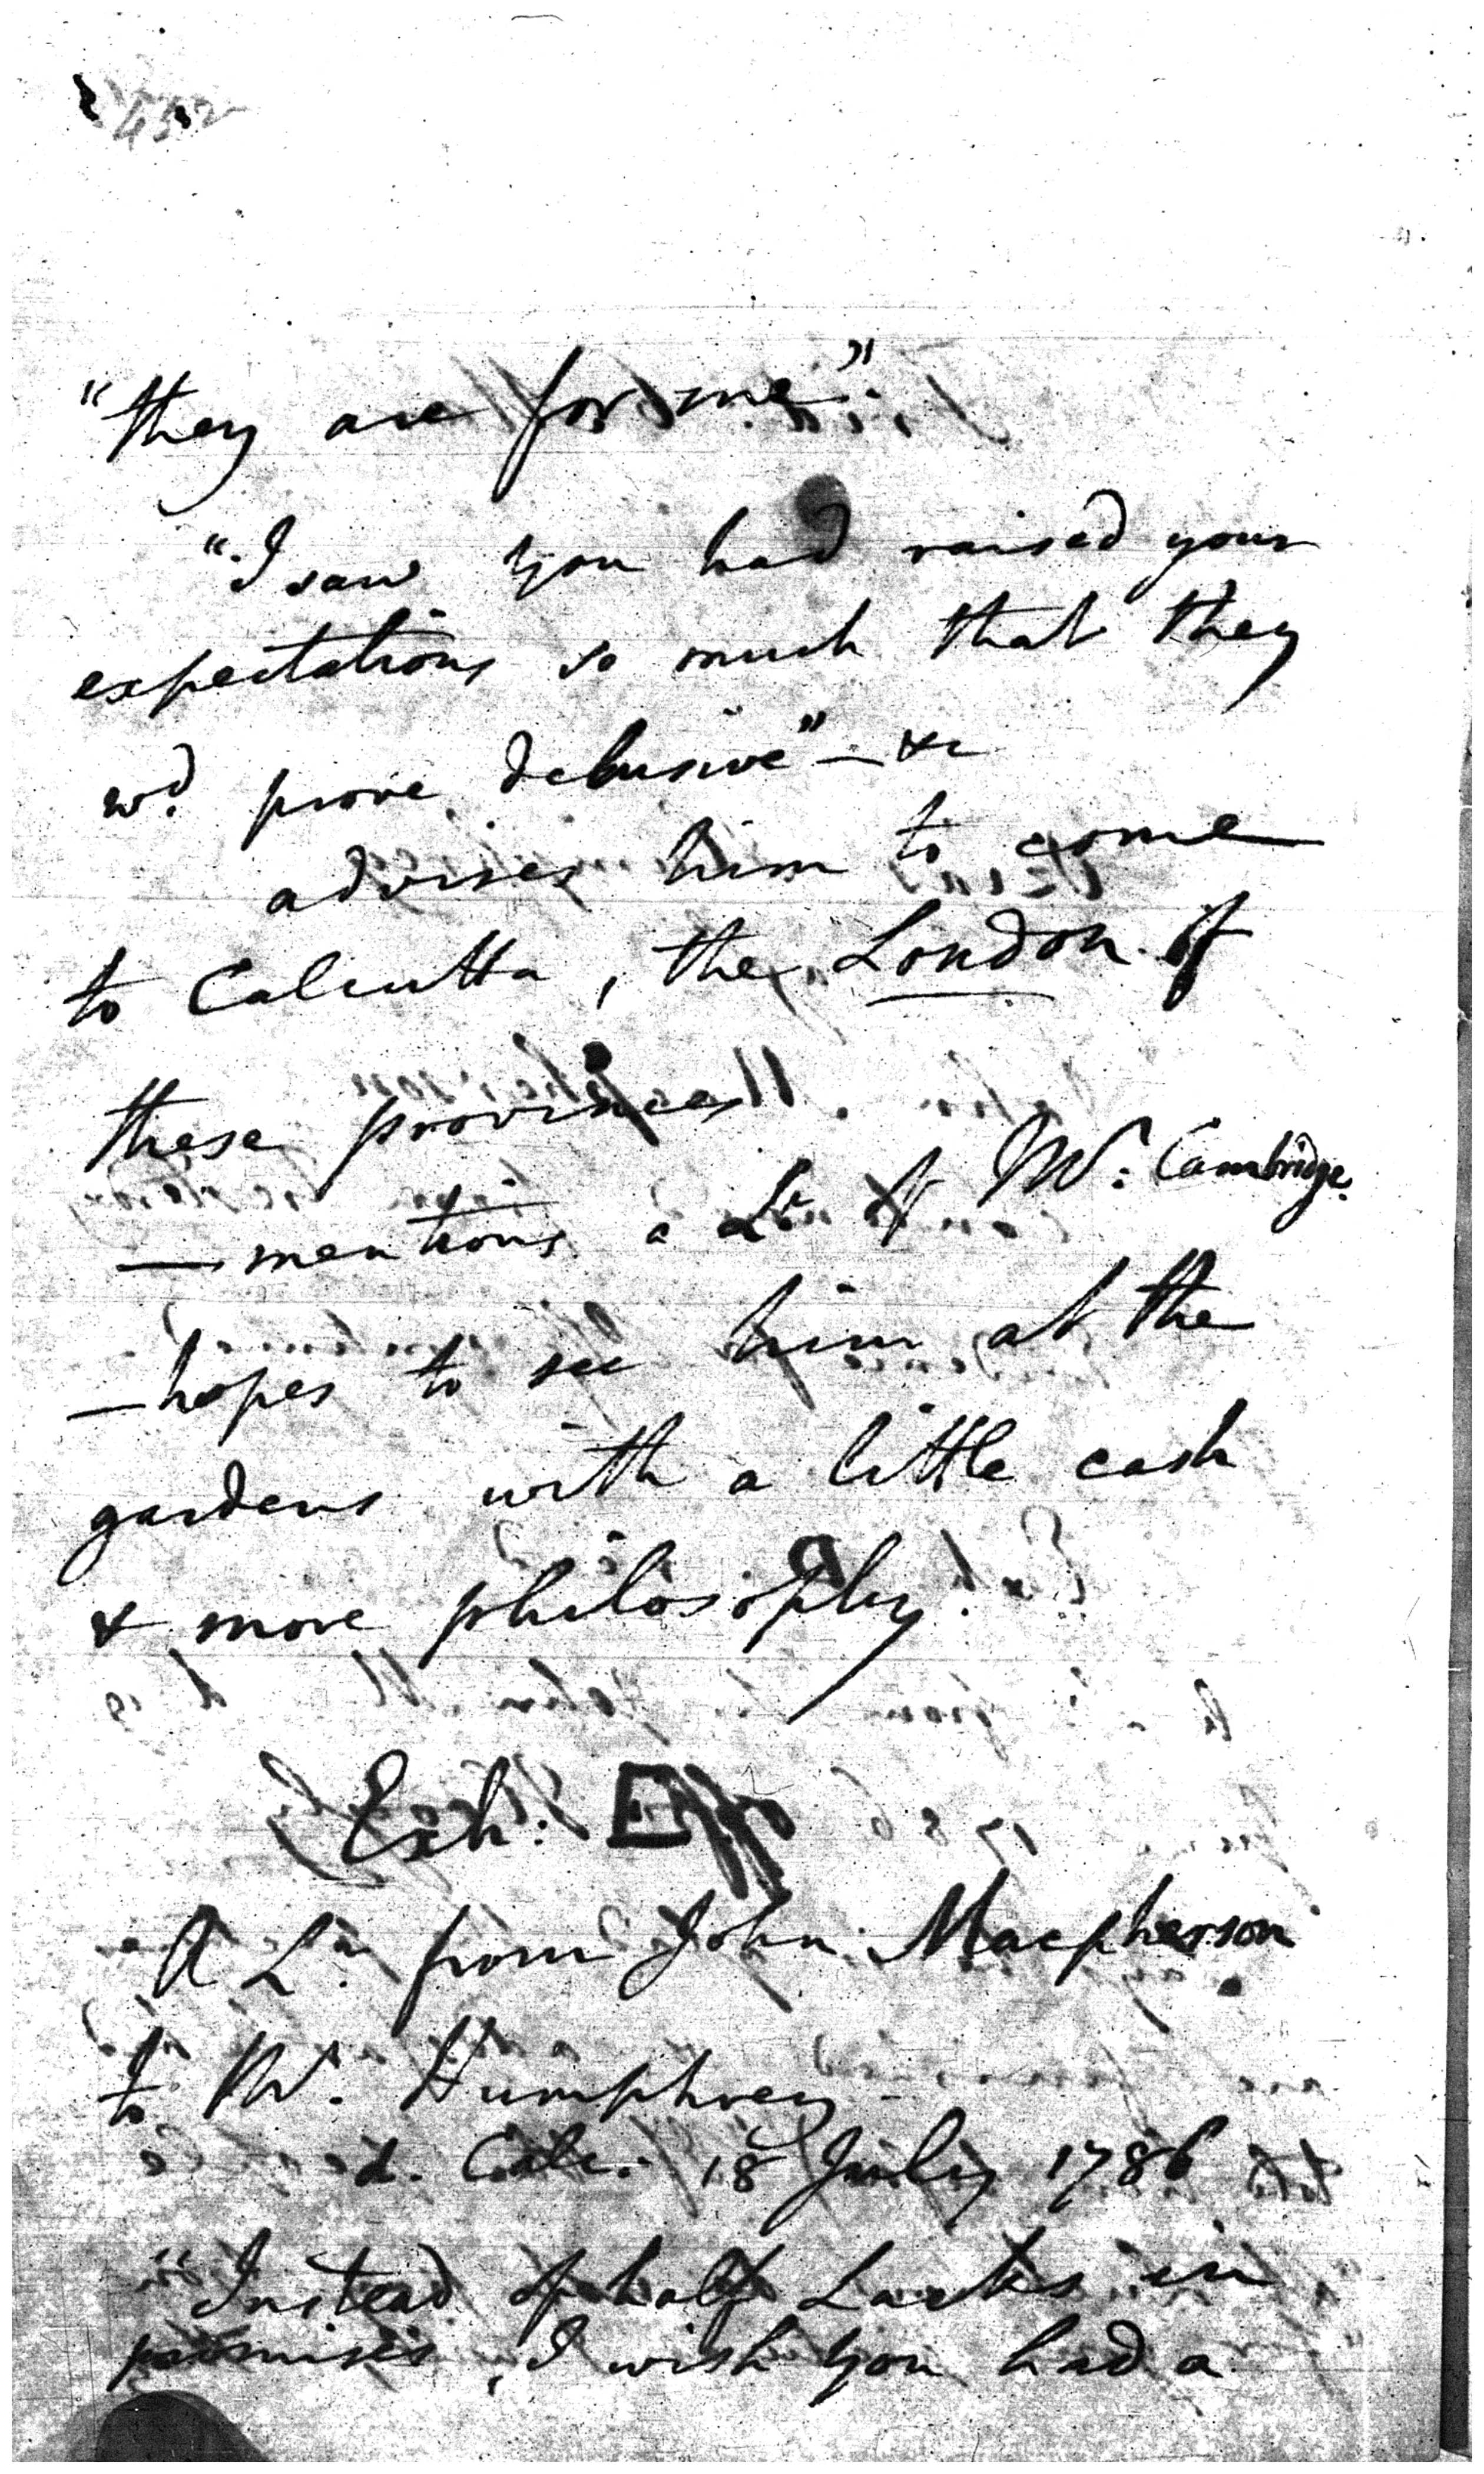 "they are for me"
"I saw you had raised your
expectations so much that they
wd. prove delusive" — &c
advises him to come
to Calcutta, the London of
these provinces
— mentions a Lr. of Mr. Cambridge.
— hopes to see him at the
gardens with a little cash
& more philosophy.
Exh: E
A Lr. from John Macpherson
to Mr. Humphrey
d. Calc. 18 July 1786
"Instead of half Lacks in
promises, I wish you had a